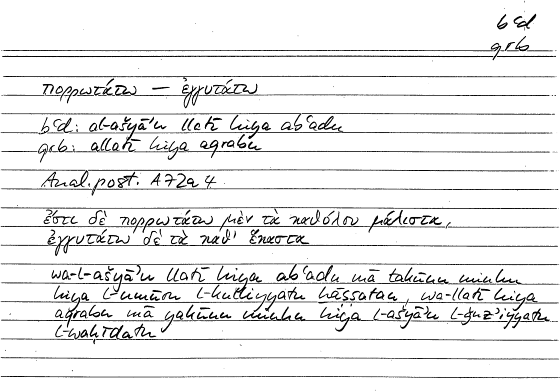 bʿd
qrb
πορρωτάτω — ἐγγυτάτω
bʿd: al-ašyāʾu llatī hiya abʿadu
qrb: allatī hiya aqrabu
Anal. post. A 72a 4
ἔστι δὲ πορρωτάτω μὲν τὰ καθόλου μάλιστα,
ἐγγυτάτω δὲ τὰ καθ' ἕκαστα
wa-l-ašyāʾu llatī hiya abʿadu mā takūnu minhu
hiya l-umūru l-kulliyyatu ḫāṣṣatan, wa-llatī hiya
aqrabu mā yakūnu minhu hiya l-ašyāʾu l-ǧuzʾiyyatu
l-waḥīdatu